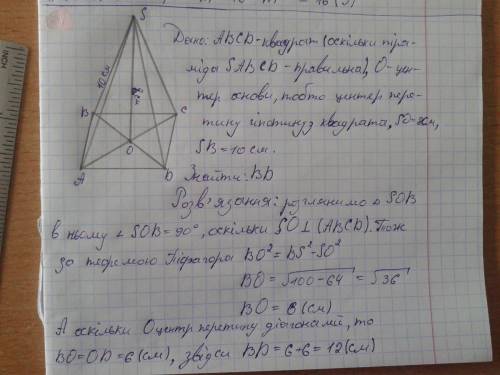 S
10 см
8 см
B
C
O
A
D
Дано: ABCD-квадрат (оскільки піра-
міда SABCD - правильна), O-цен-
тер основи, тобто центер пере-
тину гіпотинуз квадрата, SO=8см,
SB=10см.
Знайти: BD
Розв'язання: розглянимо △ SOB
в ньому ∠ SOB=90°, оскільки SO⊥(ABCD). Тож
за теоремою Піфагора BO²=BS²-SO²
BO=√100-64=√36
BO=6(см)
А оскільки O центр перетину діагоналй, то
BO=OD=6(см), звідси BD=6+6=12(см)